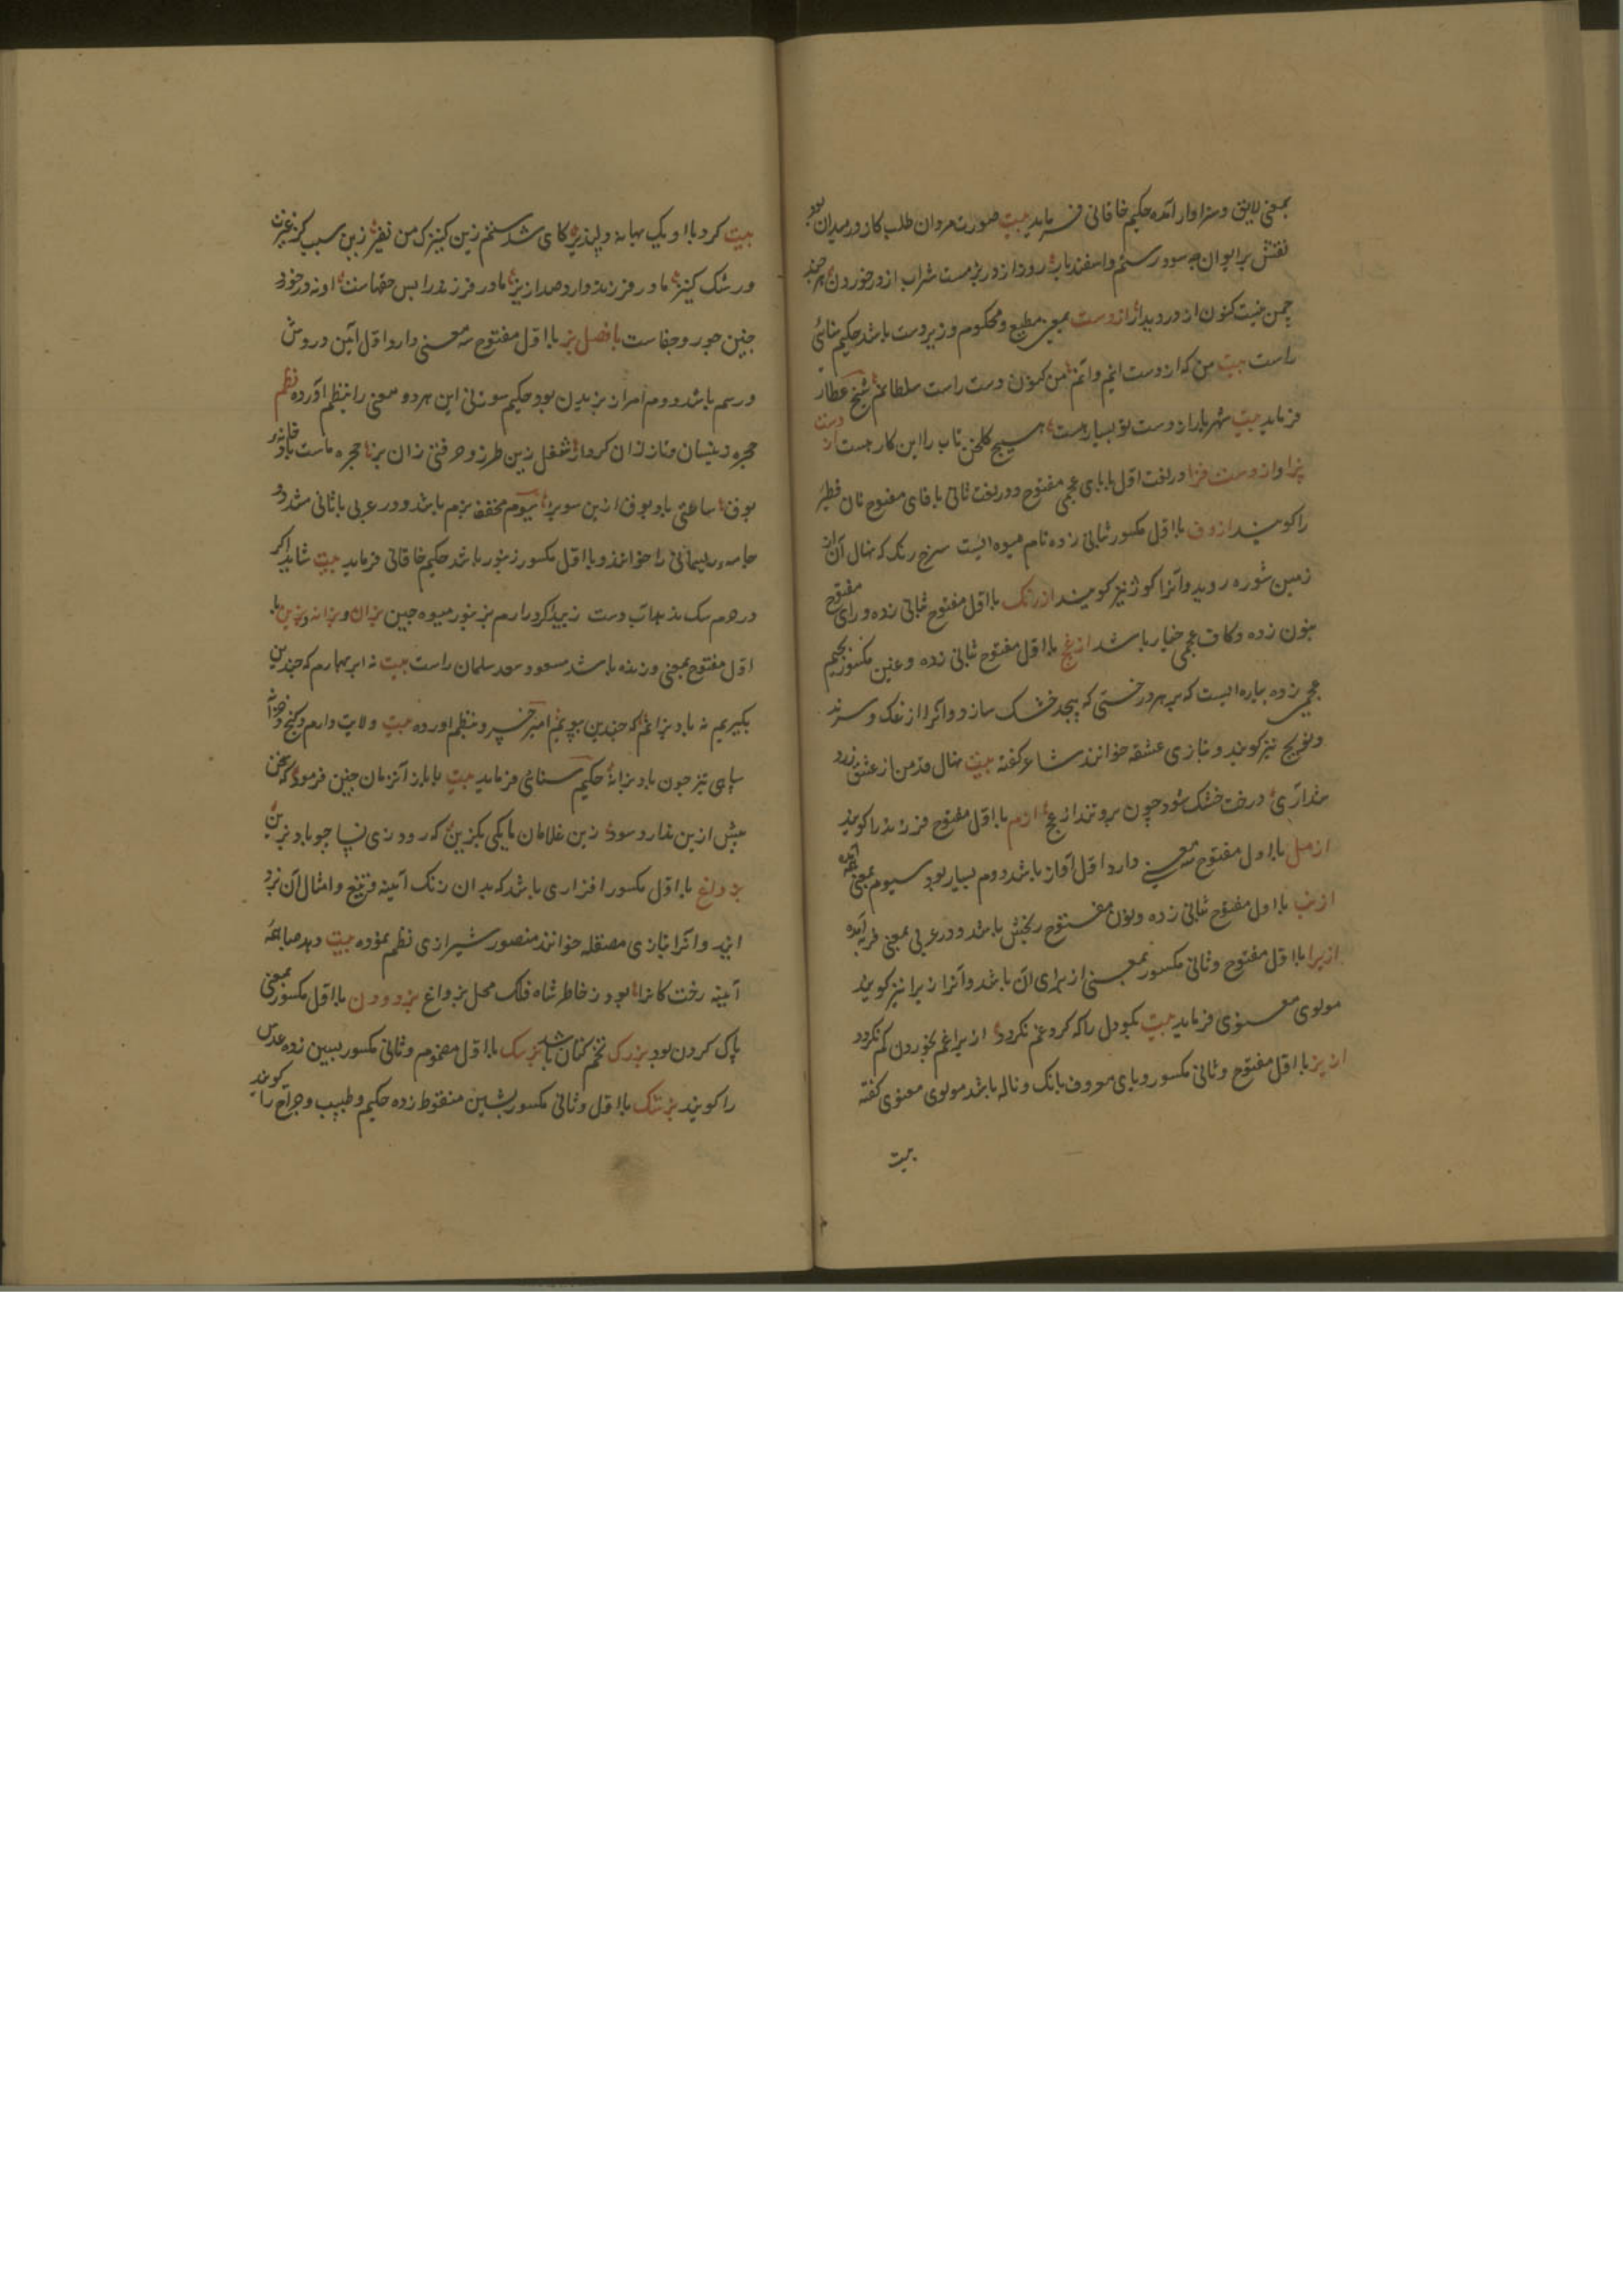 بمعنی لایق و سزاوار آمده حکیم خاقانی فرماید بیت صورت مردان طلب کز در میدان بود
نقش بر ایوان چه سود رستم و اسفندیار رود از در بزمست شراب از در خوردن هر چند
چمن نیست کنون از در دیدار از دست بمعنی مطیع و محکوم و زیردست باشد حکیم سنائی
راست بیت من که از دست اینم و آنم من کنون دست راست سلطانم شیخ عطار
فرماید بیت شهریارا ز دست تو بسیار هست هیچ گلخن تاب را این کار هست از دست
بزا و از دست فزا در لغت اول با بای عجمی مفتوح و در لغت ثانی با فای مفتوح نان فطیر
را گویند ازدف با اول مکسور بثانی زده نام میوه ایست سرخ رنگ که نهال آن از
زمین شوره روید و آنرا کوژ نیز گویند ازرنگ با اول مفتوح بثانی زده و رای مفتوح
بنون زده و کاف عجمی خیار باشد ازغج با اول مفتوح بثانی زده و غین مکسور بجیم
عجمی زده پیاره ایست که بر هر درختی که پیچد خشک سازد و آنرا ازغک و سرند
و نویج نیز گویند و بتازی عشقه خوانند شاعر گفته بیت نهال قد من از عشق زرد
پنداری درخت خشک شود چون برو تند ازغج ازم با اول مفتوح فرزند را گویند
ازمل با اول مفتوح سه معنی دارد اول آواز باشد دوم بسیار بود سیوم بمعنی همه آمده
ازنب با اول مفتوح بثانی زده و نون مفتوح رنجش باشد و در عربی بمعنی فربه آمده
ازیرا با اول مفتوح و ثانی مکسور بمعنی از برای آن باشد و آنرا زیرا نیز گویند
مولوی معنوی فرماید بیت بگو دل را که گرد غم نگردد ازیرا غم بخوردن کم نگردد
ازیز با اول مفتوح و ثانی مکسور و یای معروف بانگ و ناله باشد مولوی معنوی گفته
بیت
بیت کرد با او یک بهانه دلپذیر کای شد ستم زین کنیزک من نفیر زین سبب کز غیرت
و رشک کنیز مادر فرزند دارد صد ازیز مادر فرزند را بس حقهاست او نه در خورد
چنین جور و جفاست با فصل بز با اول مفتوح سه معنی دارد اول آئین و روش
و رسم باشد دوم امر از بزیدن بود حکیم سوزنی این هر دو معنی را بنظم آورده نظم
حجره ز بیتسان و نماز ان کرد از شغل زین طرز و حرفتی زان بز حجره ماست باد خانه بر
بوف ساعتی باد بوف ازین سو بز سیوم مخفف بزم باشد و در عربی با ثانی مشدد
جامه ریسمانی را خوانند و با اول مکسور زنبور باشد حکیم خاقانی فرماید بیت شاید اگر
در حرم سگ ندهد آب دست زیبد اگر در ارم بز نبود میوه چین بزان و بزانه و بزین با
اول مفتوح بمعنی وزنده باشد مسعود سعد سلمان راست بیت نه ابر بهارم که چندین
بگریم نه باد بزانم که چندین بپویم امیر خسرو بنظم آورده بیت ولایت دارم و گنج و خزانه
سپاهی تیز چون باد بزانه حکیم سنائی فرماید بیت بایاز آنزمان چنین فرمود که سخن
بیش ازین ندارد سود زین غلامان یا یکی بگزین که رود زی نسا چو باد بزین
بزداغ با اول مکسور افزاری باشد که بدان زنگ آئینه و تیغ و امثال آن بزد
ایند و آنرا بتازی مصقله خوانند منصور شیرازی نظم نموده بیت دهد صباغه
آینه رخت کانرا بود ز خاطر شاه فلک محل بزداغ بزدودن با اول مکسور بمعنی
پاک کردن بود بزرک تخم کتان باشد بزسک با اول مضموم و ثانی مکسور بسین زده عدس
را گویند بزشک با اول و ثانی مکسور بشین منقوط زده حکیم و طبیب و جراح را گویند